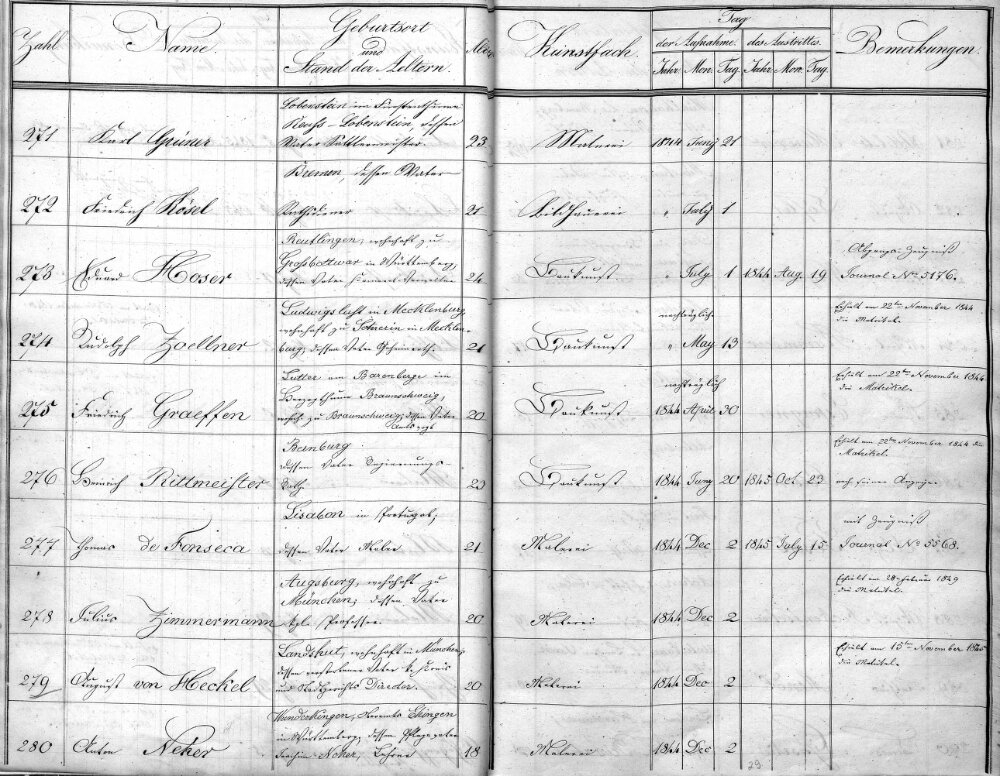 Zahl Name. Geburtsort und Stand der Aeltern. Alter Kunstfach. Tag der Aufnahme. des Austrittes. Bemerkungen.
Jahr. Mon. Tag. Jahr. Mon. Tag.
Lobenstein im Fürstenthume
Reuss-Lobenstein, dessen
271 Karl Grüner Vater Sattlermeister 23 Malerei 1844 Juny 21
Bremen, dessen Vater
272 Friedrich Kösel Rathsdiener 21 Bildhauerei " July 1
Reutlingen, wohnhaft zu
Großbottwar in Württemberg, Abgangs-Zeugniß
273 Eduard Hoser dessen Vater 24 Baukunst " July 1 1844 Aug. 19 Journal No 5176.
Ludwigslust in Mecklenburg, nachträglich Erhielt am 22ten November 1844
wohnhaft zu Schwerin in Mecklen- die Matrikel.
274 Rudolph Zoellner burg, dessen Vater Geheimrath 21 Baukunst " May 13
Lutter am Barenberge im nachträglich Erhielt am 22ten November 1844
Herzogthum Braunschweig, die Matrikel.
275 Friedrich Graeffen wohnhaft zu Braunschweig, dessen Vater 20 Baukunst 1844 April 30
Bernburg Erhielt am 22ten November 1844 die
dessen Vater Regierungs- Matrikel.
276 Heinrich Rittmeister Rath 23 Baukunst 1844 Juny 20 1845 Oct. 23 nach seiner Anzeige.
Lisabon in Portugal, mit Zeugniß
277 Thomas de Fonseca dessen Vater Maler 21 Malerei 1844 Dec 2 1845 July 15 Journal No 5568.
Augsburg, wohnhaft zu Erhielt am 28 Februar 1849
München, dessen Vater die Matrikel.
278 Julius Zimmermann kgl. Professor. 20 Malerei 1844 Dec 2
Landshut, wohnhaft in München, Erhielt am 15ten November 1845
dessen verstorbener Vater Kreis die Matrikel.
279 August von Heckel und Stadtgerichts Director. 20 Malerei 1844 Dec 2
Munderkingen, Oberamts Ehingen
in Württemberg, dessen Pflegevater
280 Anton Neher Neher, Lehrer 18 Malerei 1844 Dec 2
29